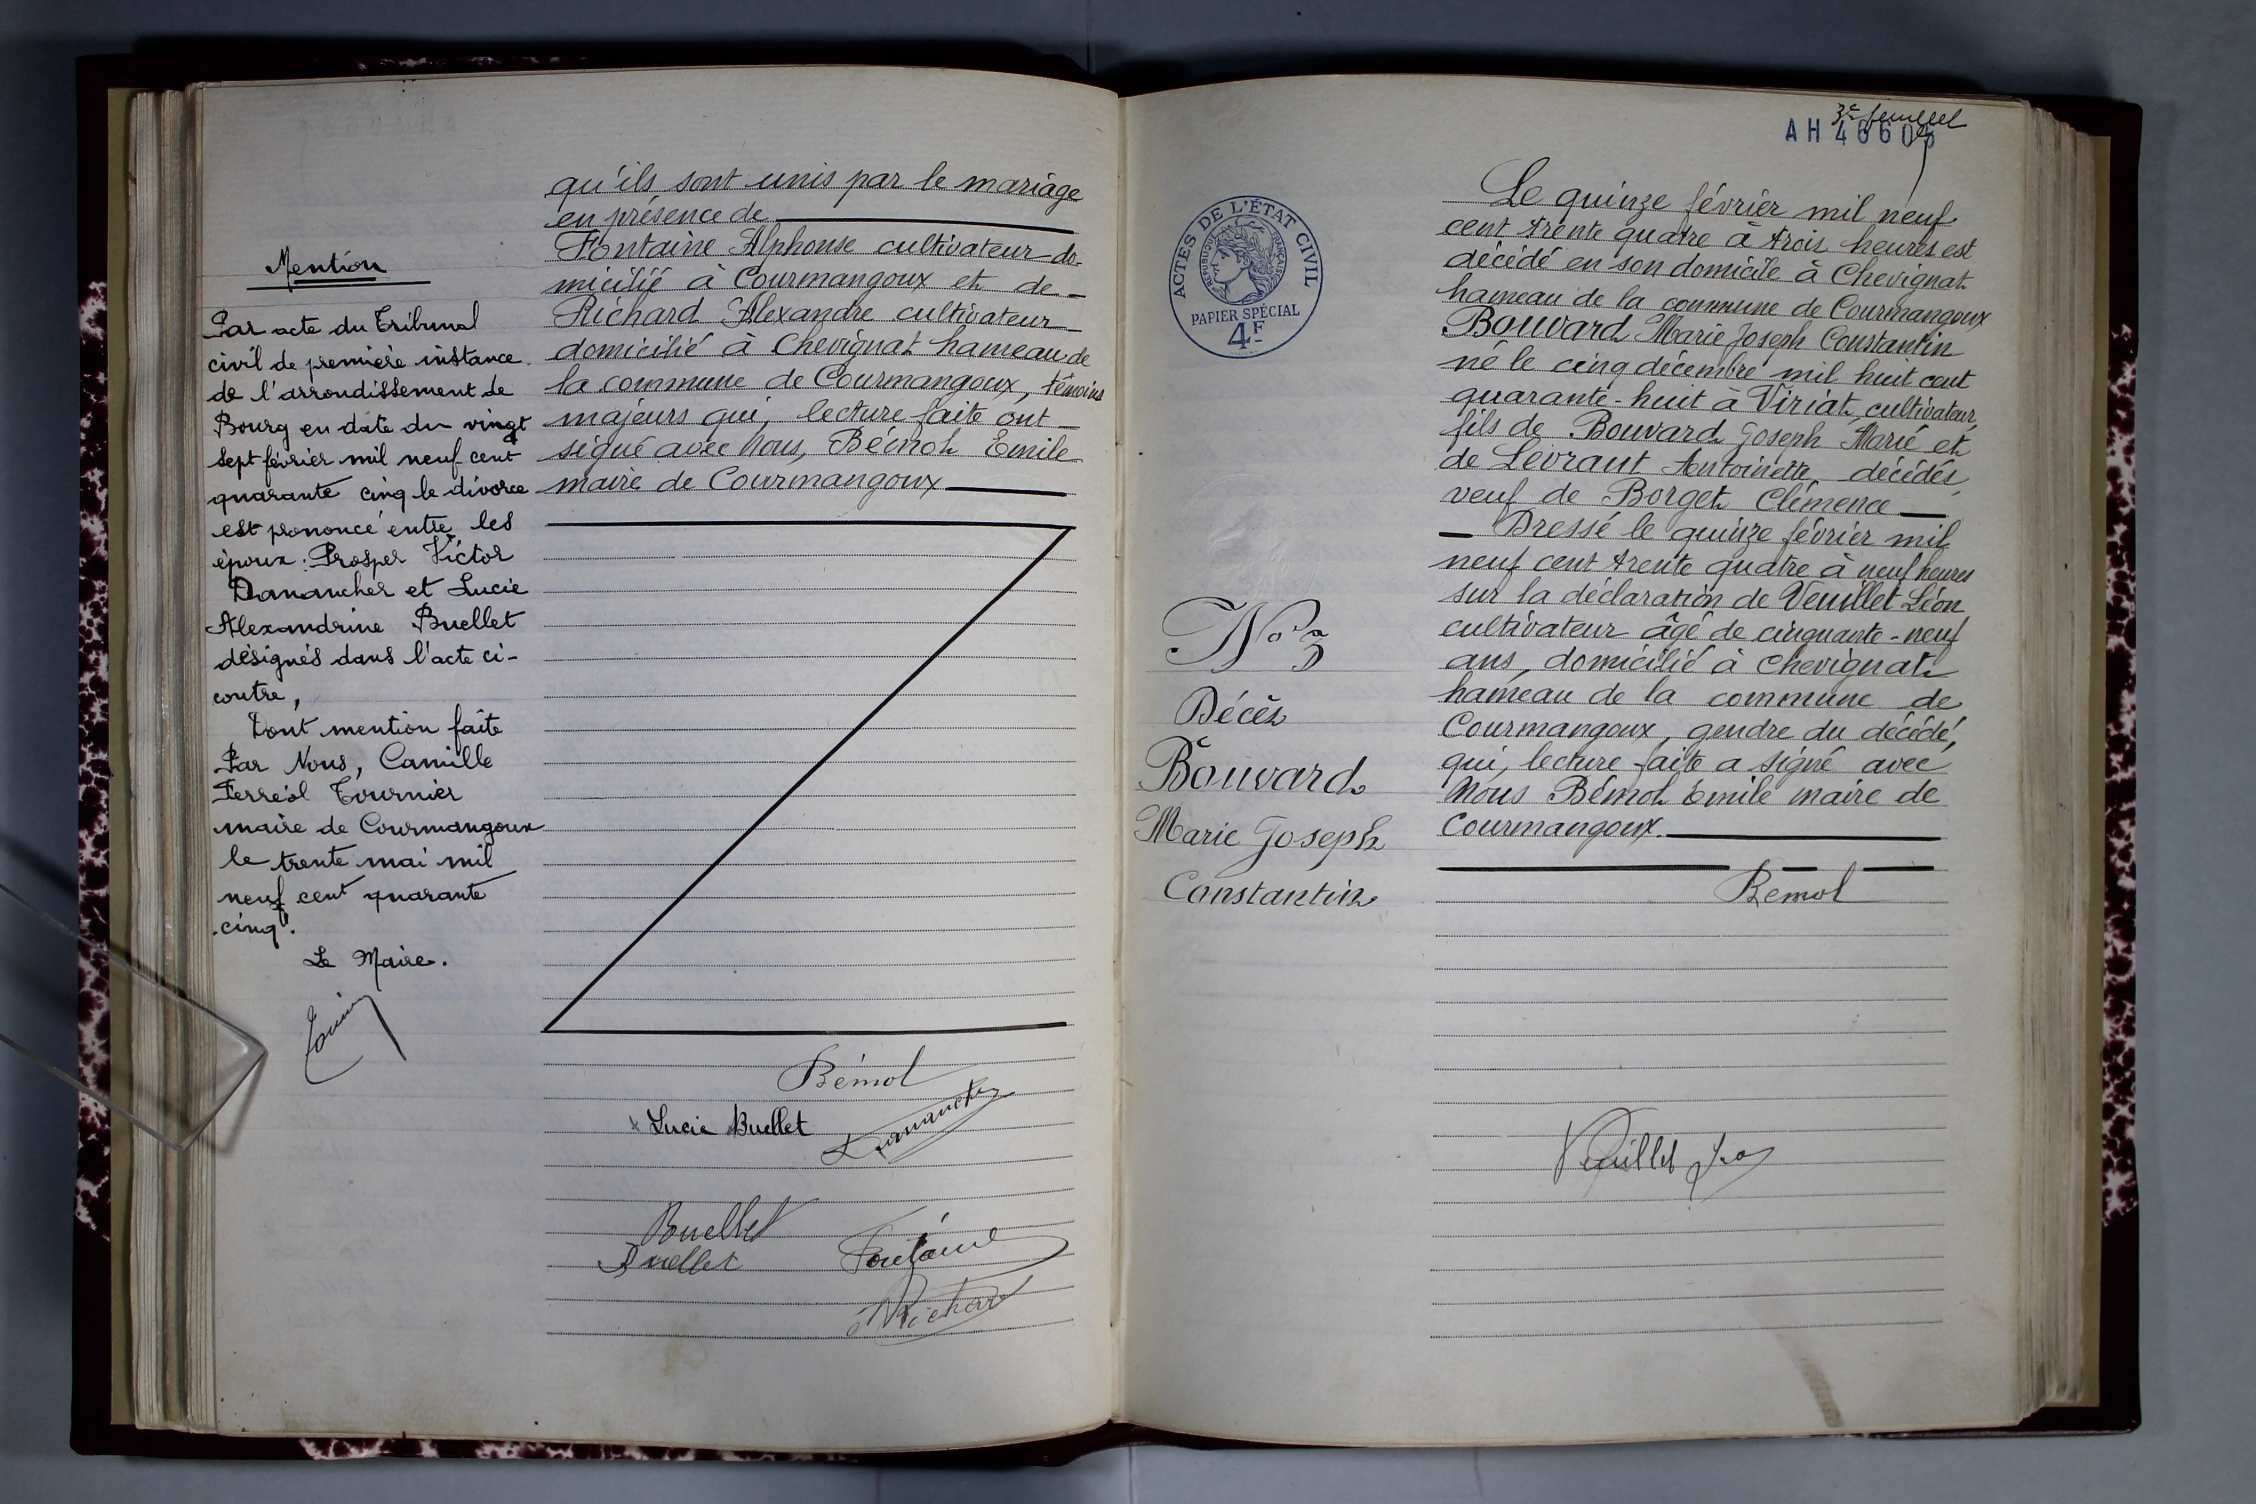 Mention
Par acte du Tribunal
civil de première instance
de l'arrondissement de
Bourg en date du vingt
sept février mil neuf cent
quarante cinq le divorce
est prononcé entre les
époux : Prosper Victor
Danancher et Lucie
Alexandrine Buellet
désignés dans l'acte ci-
contre,
Dont mention faite
Par Nous, Camille
Ferréol Tournier
maire de Courmangoux
le trente mai mil
neuf cent quarante
cinq.
Le Maire.
qu'ils sont unis par le mariage
en présence de
Fontaine Alphonse cultivateur do-
micilié à Courmangoux et de
Richard Alexandre cultivateur
domicilié à Chevignat hameau de
la commune de Courmangoux, témoins
majeurs qui, lecture faite ont
signé avec nous, Bémol Emile
maire de Courmangoux
Bémol
Lucie Buellet
Danancher
Buellet
Buellet
Fontaine
Richard
3e feuillet
AH 46605
ACTES DE L'ÉTAT CIVIL
RÉPUBLIQUE FRANÇAISE
PAPIER SPÉCIAL
4F
No 3
Décès
Bouvard
Marie Joseph
Constantin
Le quinze février mil neuf
cent trente quatre à trois heures est
décédé en son domicile à Chevignat
hameau de la commune de Courmangoux
Bouvard Marie Joseph Constantin
né le cinq décembre mil huit cent
quarante-huit à Viriat, cultivateur,
fils de Bouvard Joseph Marie et
de Levraut Antoinette décédés,
veuf de Borget Clémence
Dressé le quinze février mil
neuf cent trente quatre à neuf heures
sur la déclaration de Veuillet Léon
cultivateur âgé de cinquante-neuf
ans, domicilié à Chevignat
hameau de la commune de
Courmangoux, gendre du décédé,
qui, lecture faite a signé avec
Nous Bémol Emile maire de
Courmangoux.
Bémol
Veuillet